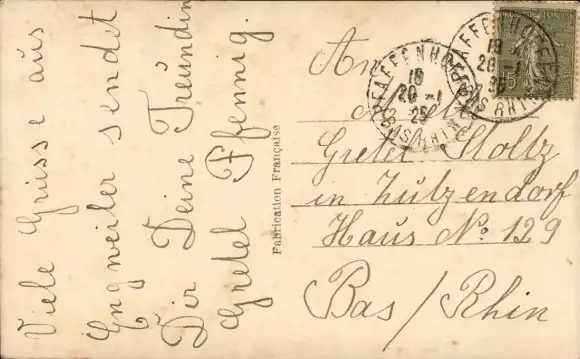 Viele Grüsse aus
Engweiler sendet
Dir Deine Freundin
Gretel Pfennig.
Fabrication Française
An
Gretel Stoltz
in Zutzendorf
Haus No. 129
Bas/Rhin
PFAFFENHOFFEN
18
20-1
25
BAS RHIN
PFAFFENHOFFEN
18
20-1
25
BAS RHIN
15